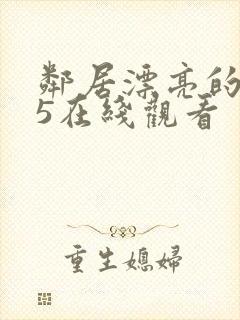 鄰居漂亮的
5在綫觀看
重生媳婦